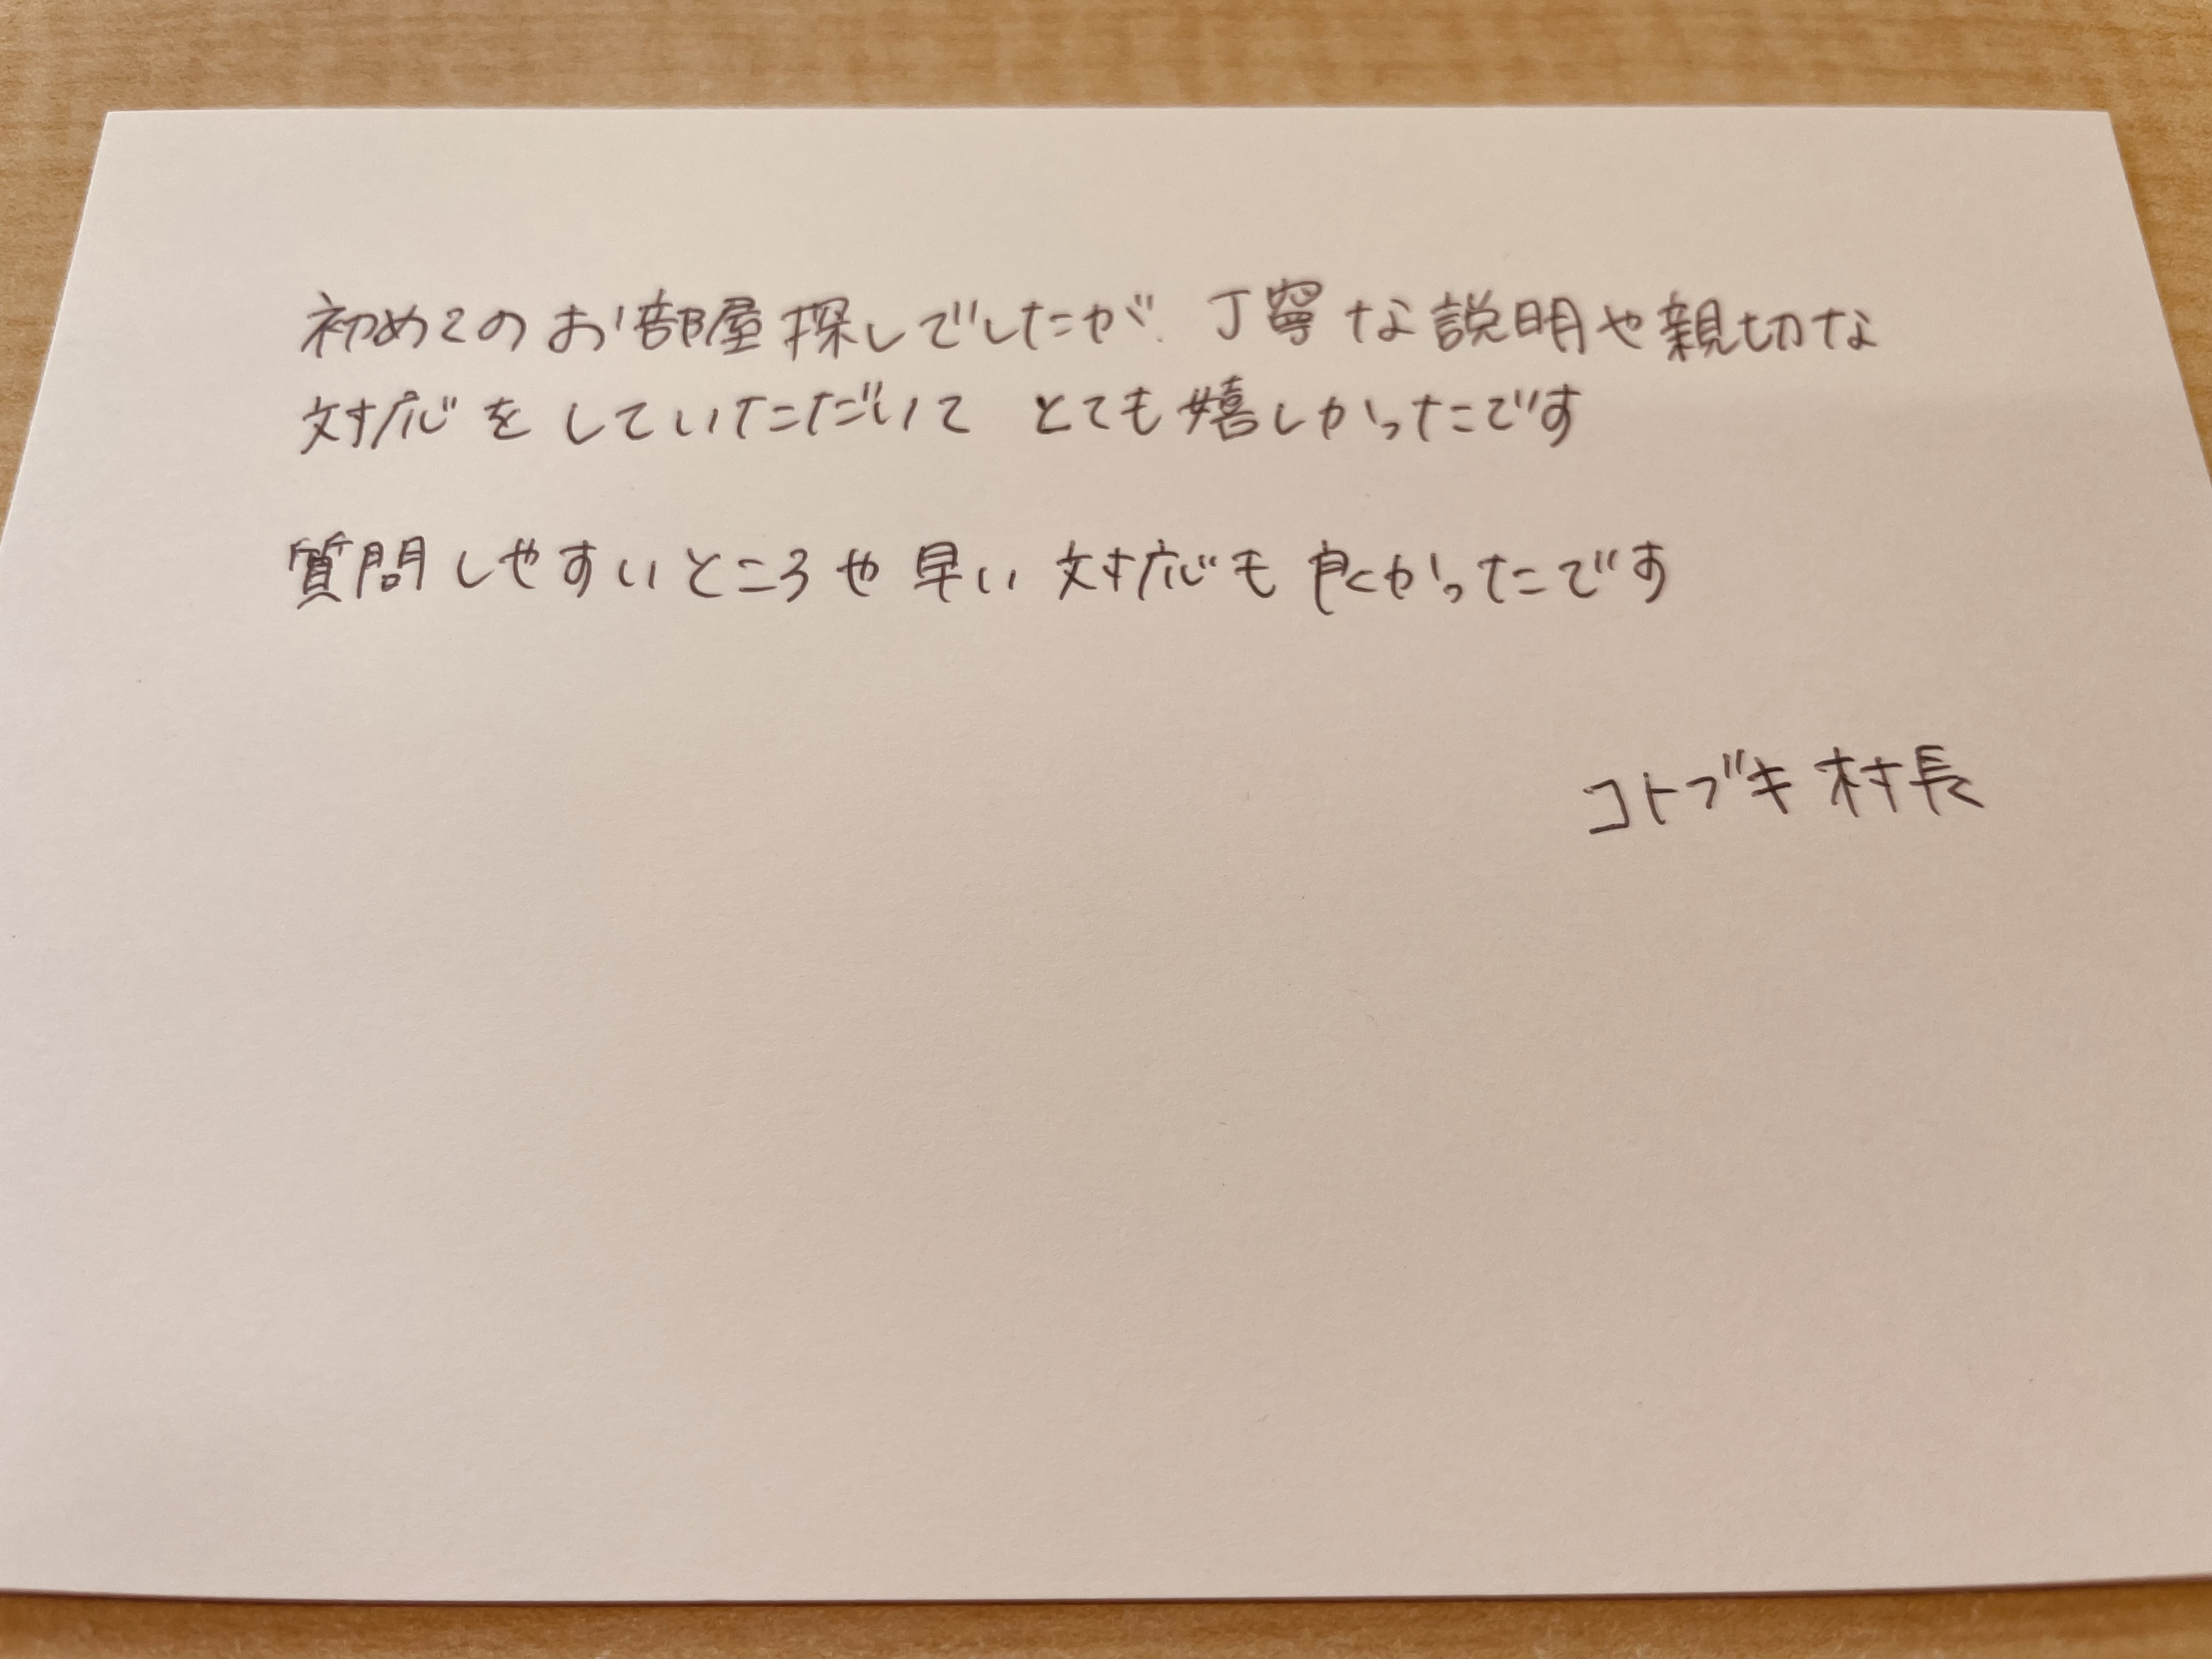 初めてのお部屋探しでしたが、丁寧な説明や親切な
対応をしていただいて とても嬉しかったです
質問しやすいところや早い対応も良かったです
コトブキ村長